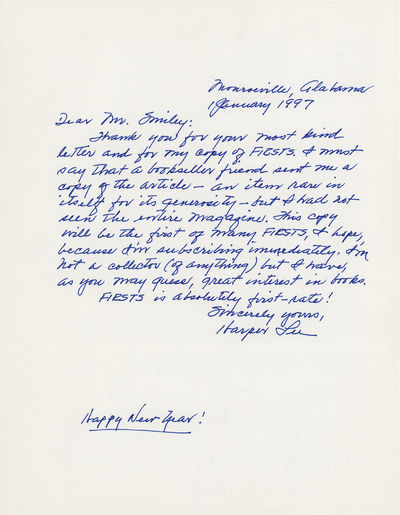 Monroeville, Alabama
1 January 1997
Dear Mr. Smiley:
Thank you for your most kind
letter and for my copy of FIRSTS. I must
say that a bookseller friend sent me a
copy of the article - an item rare in
itself for its generosity - but I had not
seen the entire magazine. This copy
will be the first of many FIRSTS, I hope,
because I'm subscribing immediately. I'm
not a collector (of anything) but I have,
as you may guess, great interest in books.
FIRSTS is absolutely first-rate!
Sincerely yours,
Harper Lee
Happy New Year!